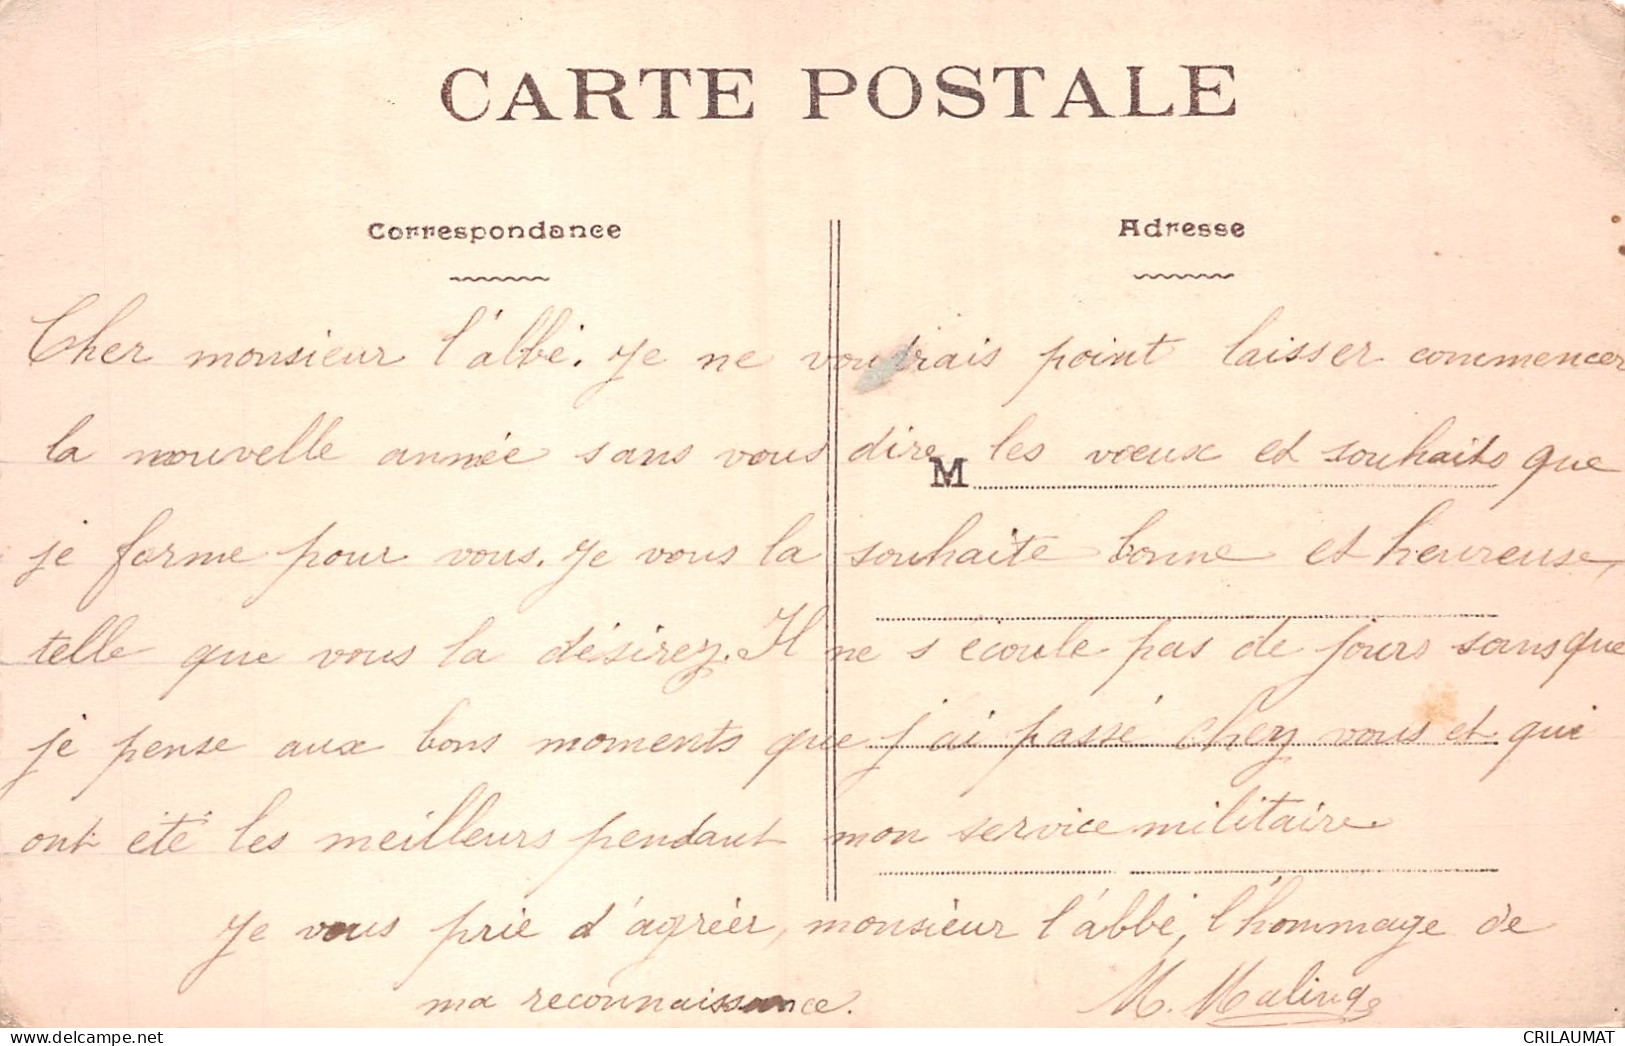 CARTE POSTALE
Correspondance
Adresse
Cher monsieur l'abbé. Je ne voudrais point laisser commencer
la nouvelle année sans vous dire les vœux et souhaits que
M
je forme pour vous. Je vous la souhaite bonne et heureuse,
telle que vous la désirez. Il ne s'écoule pas de jours sans que
je pense aux bons moments que j'ai passé chez vous et qui
ont été les meilleurs pendant mon service militaire
Je vous prie d'agréer, monsieur l'abbé, l'hommage de
ma reconnaissance.
M. Maling
CRILAUMAT